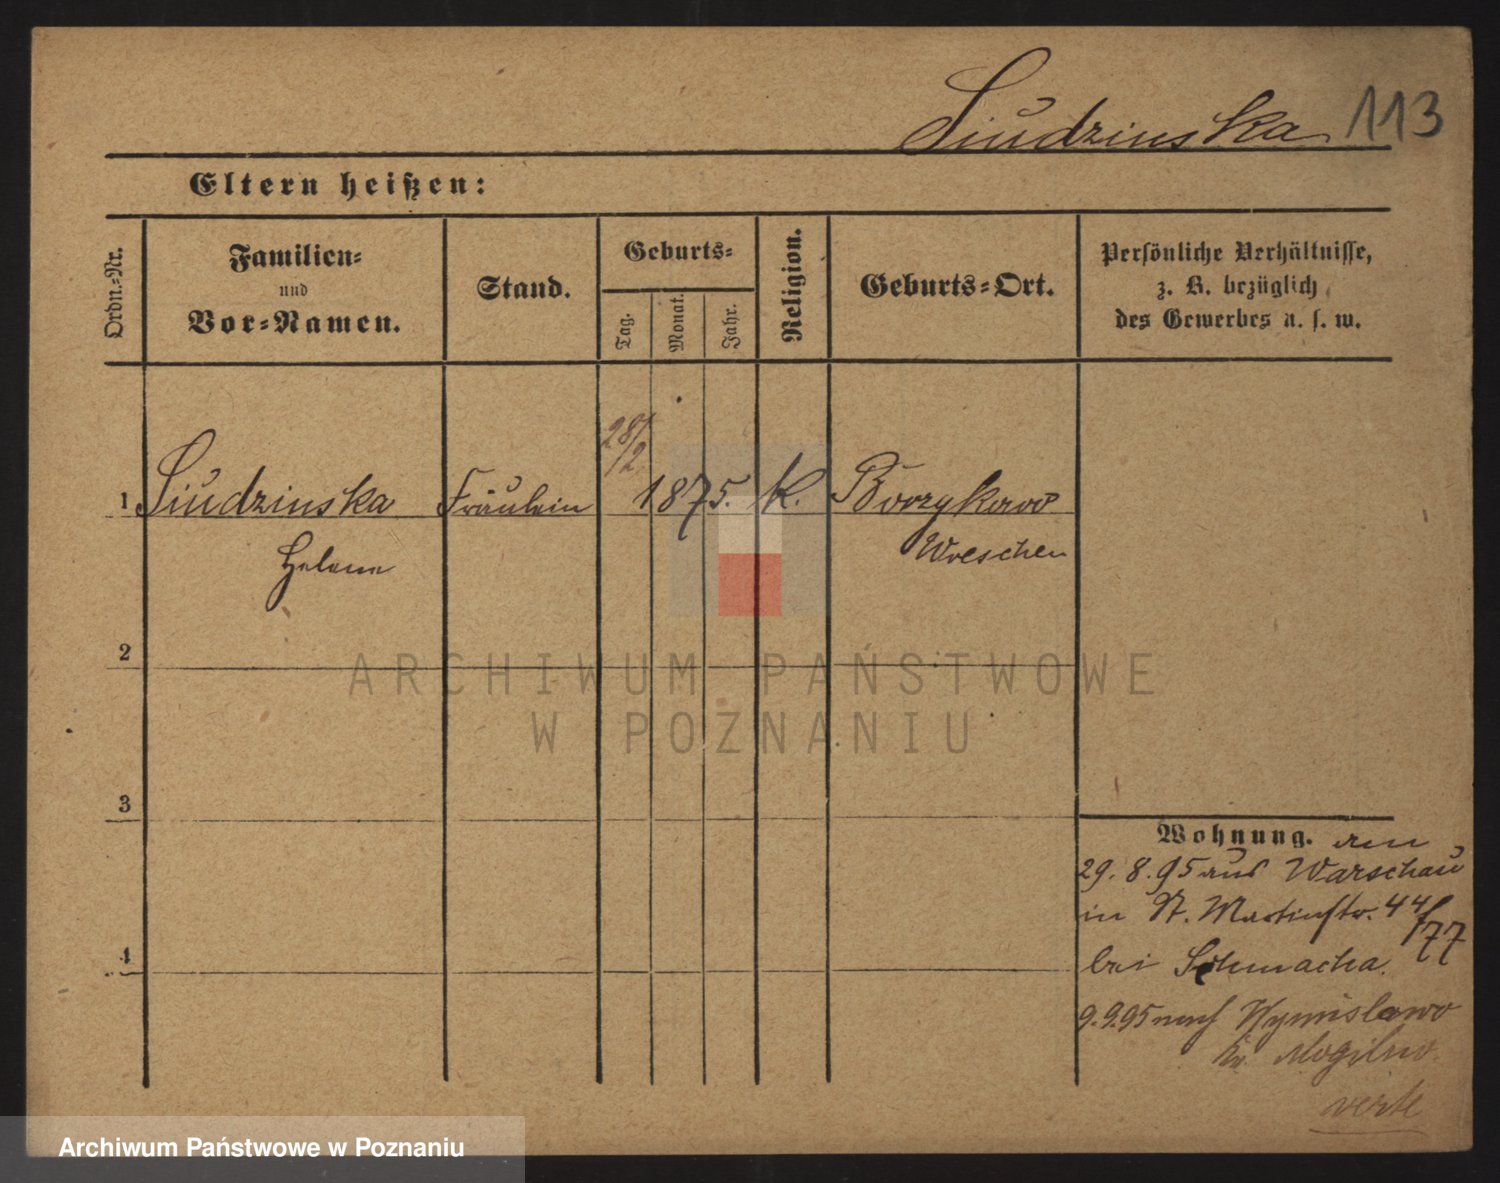 Siudzinska 113
Eltern heißen:
Ordn.-Nr.
Familien-
und
Vor-Namen.
Stand.
Geburts-
Tag.
Monat.
Jahr.
Religion.
Geburts-Ort.
Persönliche Verhältnisse,
z. B. bezüglich
des Gewerbes u. s. w.
28/2
1 Siudzinska Fräulein 1875. K. Borzykowo
Helene Wreschen
2
3
4
Wohnung. am
29. 8. 95 aus Warschau
in St. Martinstr. 44/77
bei
9.9.95 nach Wymislowo
Kr. Mogilno.
verte
ARCHIWUM PAŃSTWOWE
W POZNANIU
Archiwum Państwowe w Poznaniu